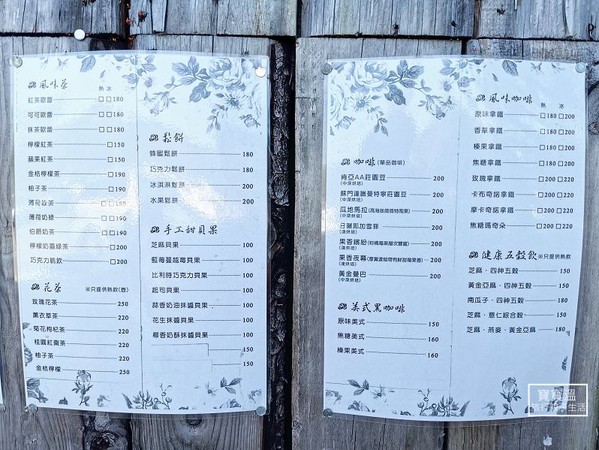 風味茶
熱 冰
紅茶歐蕾 □□180
可可歐蕾 □□180
抹茶歐蕾 □□180
檸檬紅茶 □150
蘋果紅茶 □150
金桔檸檬茶 □190
柚子茶 □190
□190
薄荷奶綠 □190
伯爵奶茶 □190
檸檬奶蓋綠茶 □200
巧克力脆飲 □200
花茶 ※只提供熱飲(壺)
玫瑰花茶 250
薰衣草茶 220
菊花枸杞茶 220
桂圓紅棗茶 220
柚子茶 220
金桔檸檬 250
鬆餅
蜂蜜鬆餅 180
巧克力鬆餅 180
冰淇淋鬆餅 200
水果鬆餅 200
手工甜貝果
芝麻貝果 100
藍莓蔓越莓貝果 100
比利時巧克力貝果 100
起司貝果 100
蒜香奶油抹醬貝果 100
花生抹醬貝果 100
椰香奶酥抹醬貝果 100
150
150
咖啡 (單品咖啡)
肯亞AA莊園豆 200
(中深烘焙)
蘇門答臘曼特寧莊園豆 200
(中深烘焙)
瓜地馬拉 200
(中深烘焙)
日曬耶加雪菲 200
(中淺烘焙)
果香繽紛 200
(中淺烘焙)
果香夜幕 200
(中淺烘焙)
黃金曼巴 200
(中深烘焙)
美式黑咖啡
原味美式 150
焦糖美式 160
榛果美式 160
風味咖啡
熱 冰
原味拿鐵 □180 □200
香草拿鐵 □180 □200
榛果拿鐵 □180 □200
焦糖拿鐵 □180 □200
玫瑰拿鐵 □200 □220
卡布奇諾拿鐵 □200 □220
摩卡奇諾拿鐵 □200 □220
焦糖瑪奇朵 □200 □220
健康五穀飲 ※只提供熱飲
芝麻．四神五穀 150
黃金亞麻．四神五穀 180
南瓜子．四神五穀 180
芝麻．薏仁綜合穀 150
芝麻．燕麥．黃金亞麻 180